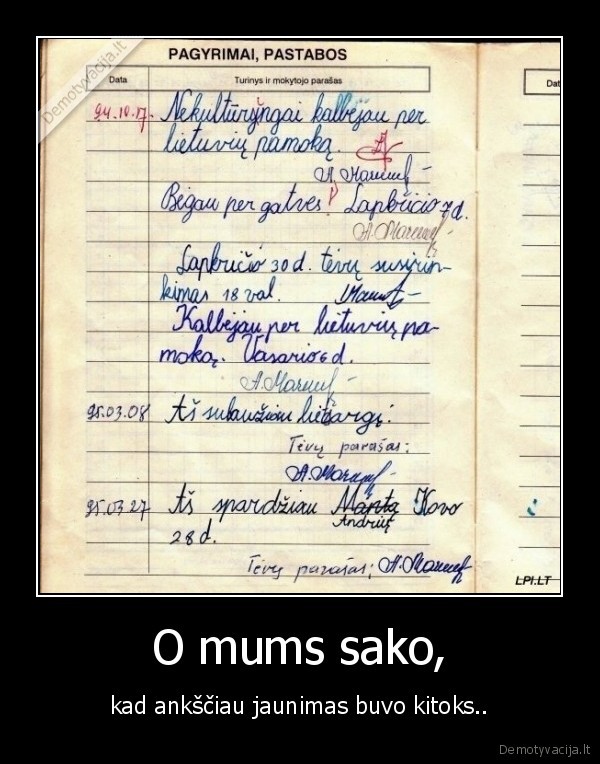 Demotyvacija.lt
PAGYRIMAI, PASTABOS
Data
Turinys ir mokytojo parašas
Dat
94.10.17. Nekultūringai kalbėjau per
lietuvių pamoką.
Bėgau per gatves! Lapkričio 7 d.
Lapkričio 30 d. tėvų susirin-
kimas 18 val.
Kalbėjau per lietuvių pa-
moką. Vasario 6 d.
95.03.08 Aš sulaužiau liežuvgį.
Tėvų parašas:
95.03.27 Aš spardžiau Mantą Kovo
Andrių
28 d.
Tėvų parašas;
LPI.LT
O mums sako,
kad ankščiau jaunimas buvo kitoks..
Demotyvacija.lt